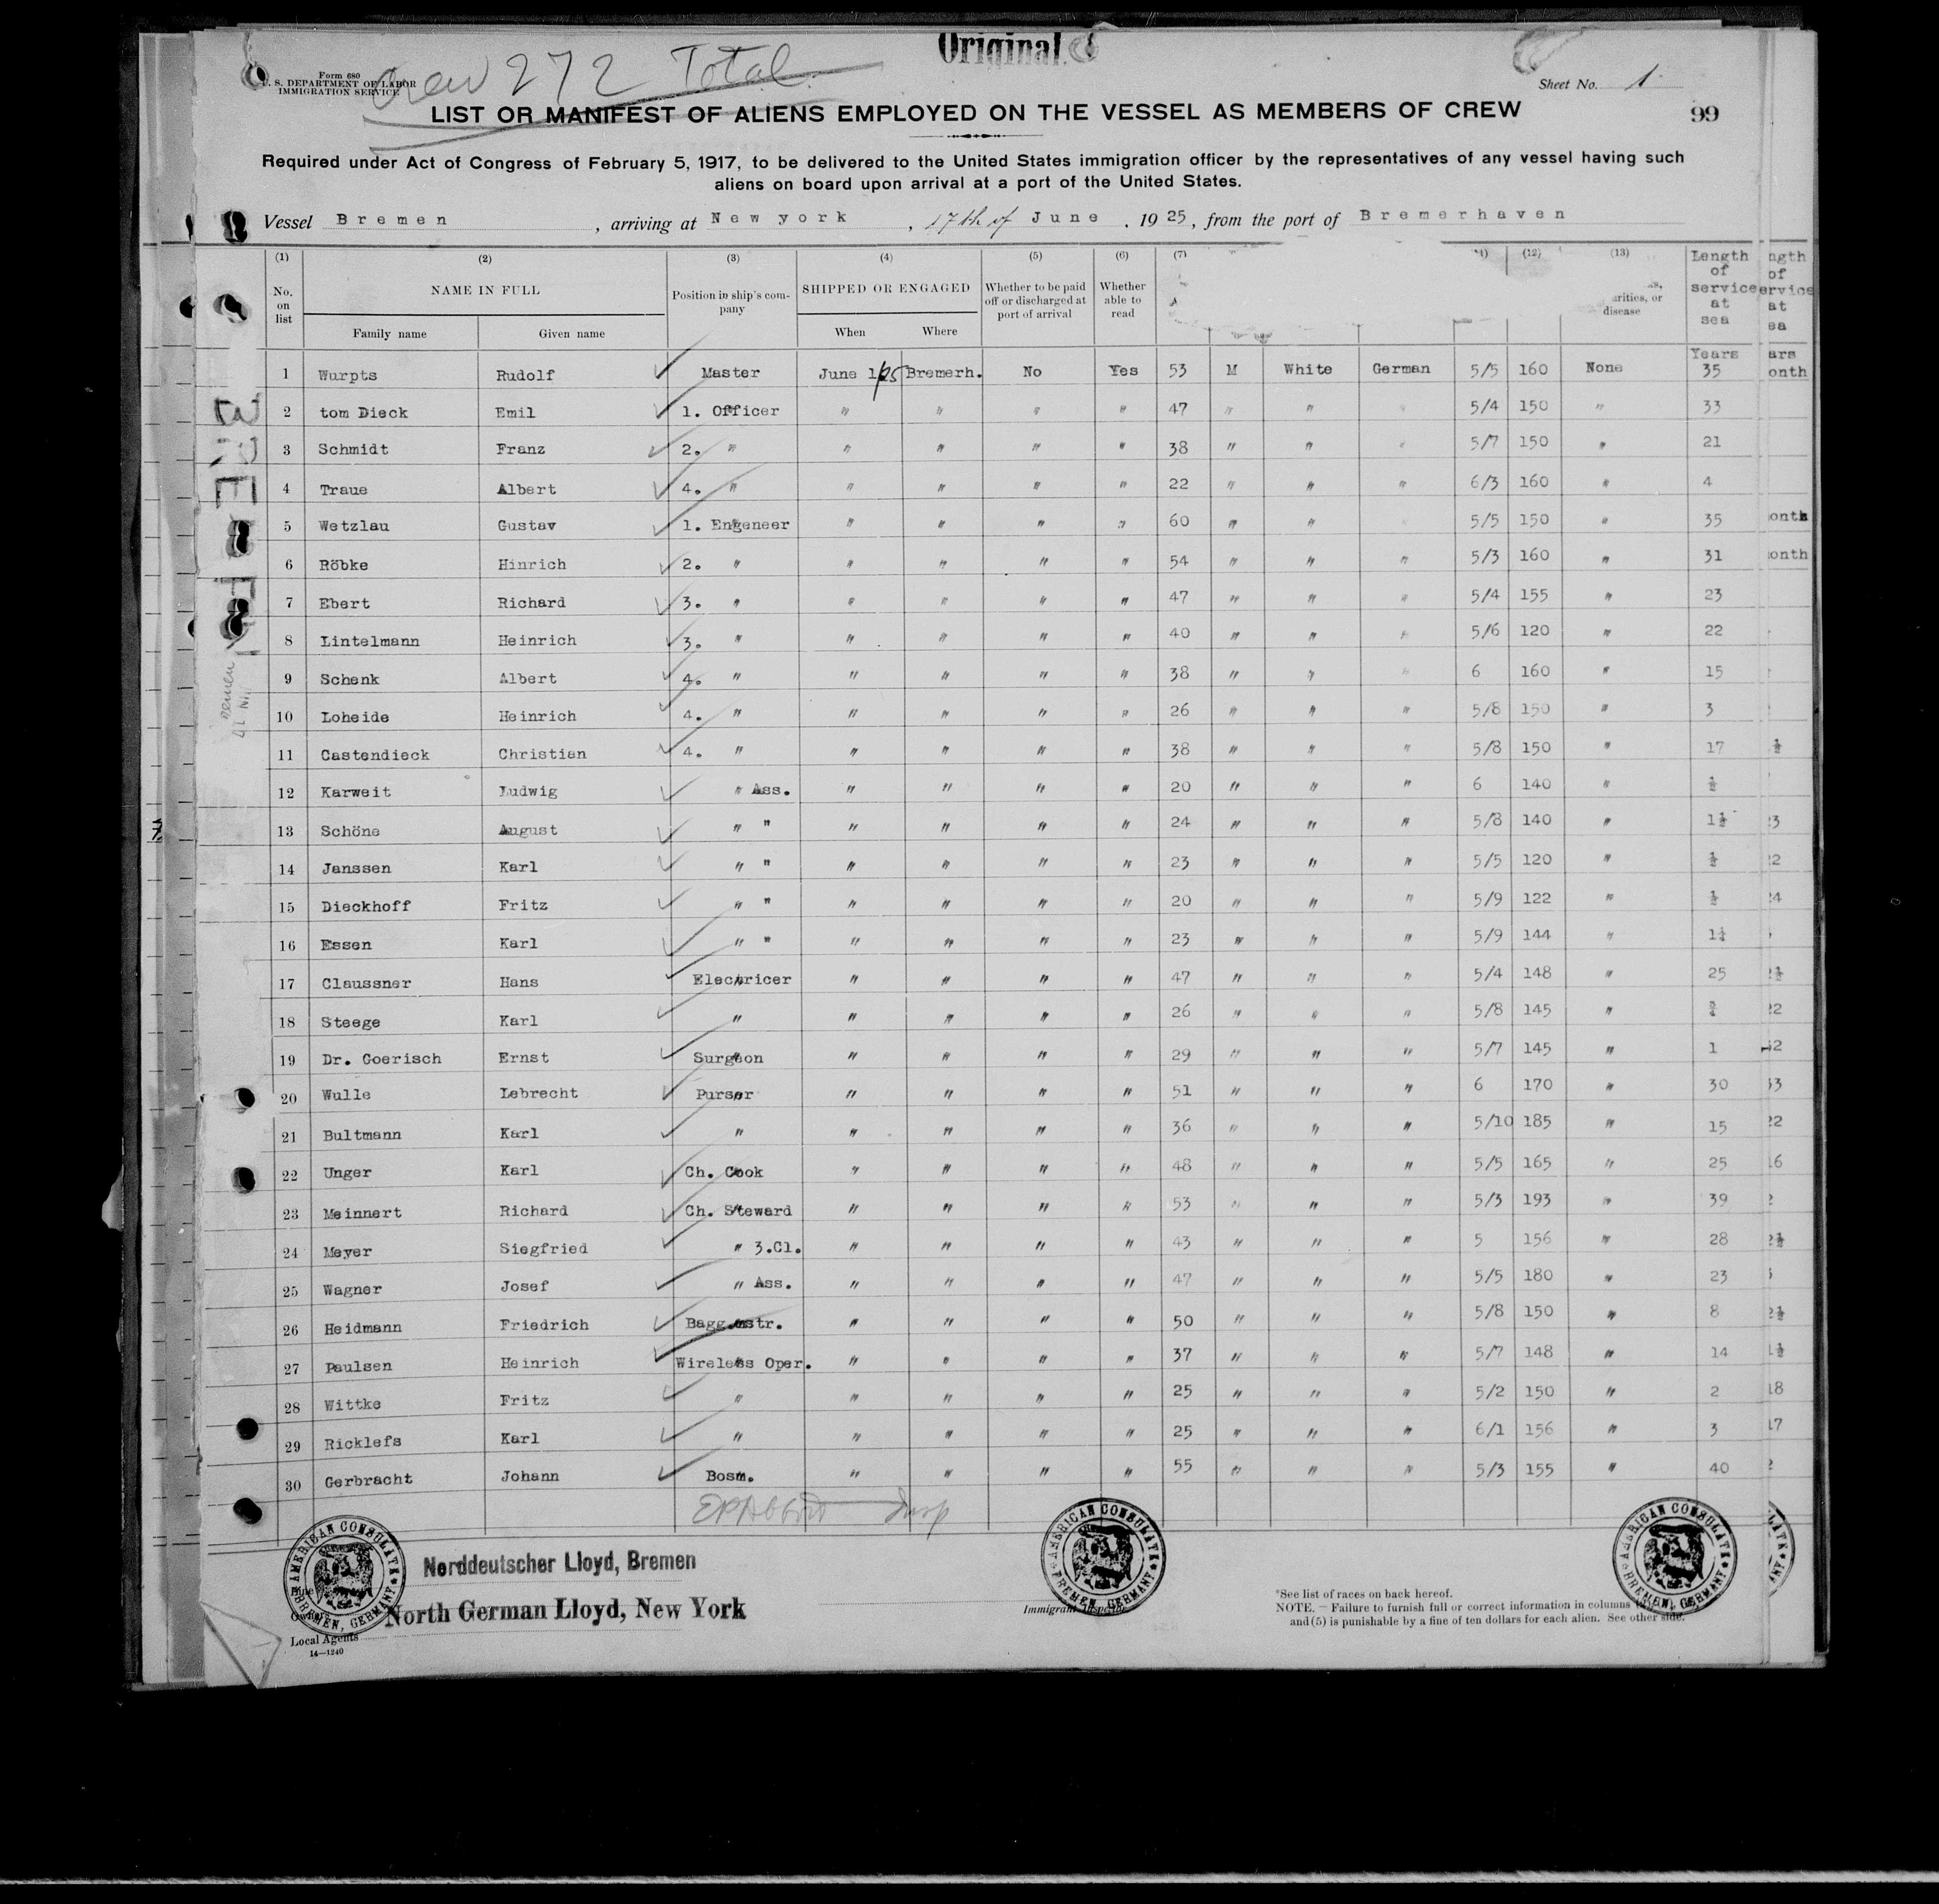 Original
Crew 272 Total
Form 680
U. S. DEPARTMENT OF LABOR
IMMIGRATION SERVICE
Sheet No. 1
99
LIST OR MANIFEST OF ALIENS EMPLOYED ON THE VESSEL AS MEMBERS OF CREW
Required under Act of Congress of February 5, 1917, to be delivered to the United States immigration officer by the representatives of any vessel having such
aliens on board upon arrival at a port of the United States.
Vessel Bremen, arriving at New york, 17th of June, 1925, from the port of Bremerhaven
(1) (2) (3) (4) (5) (6) (7) (12) (13)
No. on list
NAME IN FULL
Family name Given name
Position in ship's company
SHIPPED OR ENGAGED
When Where
Whether to be paid off or discharged at port of arrival
Whether able to read
disease
Length of service at sea
Years
1 Wurpts Rudolf Master June 1/25 Bremerh. No Yes 53 M White German 5/5 160 None 35
2 tom Dieck Emil 1. Officer " " " " 47 " " " 5/4 150 " 33
3 Schmidt Franz 2. " " " " " 38 " " " 5/7 150 " 21
4 Traue Albert 4. " " " " " 22 " " " 6/3 160 " 4
5 Wetzlau Gustav 1. Engeneer " " " " 60 " " " 5/5 150 " 35
6 Röbke Hinrich 2. " " " " " 54 " " " 5/3 160 " 31
7 Ebert Richard 3. " " " " " 47 " " " 5/4 155 " 23
8 Lintelmann Heinrich 3. " " " " " 40 " " " 5/6 120 " 22
9 Schenk Albert 4. " " " " " 38 " " " 6 160 " 15
10 Loheide Heinrich 4. " " " " " 26 " " " 5/8 150 " 3
11 Castendieck Christian 4. " " " " " 38 " " " 5/8 150 " 17
12 Karweit Ludwig " Ass. " " " " 20 " " " 6 140 " ½
13 Schöne August " " " " " " 24 " " " 5/8 140 " 1½
14 Janssen Karl " " " " " " 23 " " " 5/5 120 " ½
15 Dieckhoff Fritz " " " " " " 20 " " " 5/9 122 " ½
16 Essen Karl " " " " " " 23 " " " 5/9 144 " 1¼
17 Claussner Hans Electricer " " " " 47 " " " 5/4 148 " 25
18 Steege Karl " " " " " 26 " " " 5/8 145 " ¾
19 Dr. Goerisch Ernst Surgeon " " " " 29 " " " 5/7 145 " 1
20 Wulle Lebrecht Purser " " " " 51 " " " 6 170 " 30
21 Bultmann Karl " " " " " 36 " " " 5/10 185 " 15
22 Unger Karl Ch. Cook " " " " 48 " " " 5/5 165 " 25
23 Meinnert Richard Ch. Steward " " " " 53 " " " 5/3 193 " 39
24 Meyer Siegfried " 3.Cl. " " " " 43 " " " 5 156 " 28
25 Wagner Josef " Ass. " " " " 47 " " " 5/5 180 " 23
26 Heidmann Friedrich Bagg.mstr. " " " " 50 " " " 5/8 150 " 8
27 Paulsen Heinrich Wireless Oper. " " " " 37 " " " 5/7 148 " 14
28 Wittke Fritz " " " " " 25 " " " 5/2 150 " 2
29 Ricklefs Karl " " " " " 25 " " " 6/1 156 " 3
30 Gerbracht Johann Bosm. " " " " 55 " " " 5/3 155 " 40
AMERICAN CONSULATE BREMEN, GERMANY
AMERICAN CONSULATE BREMEN, GERMANY
AMERICAN CONSULATE BREMEN, GERMANY
Norddeutscher Lloyd, Bremen
North German Lloyd, New York
Local Agents
14—1240
Immigrant Inspector
*See list of races on back hereof.
NOTE.—Failure to furnish full or correct information in columns
and (5) is punishable by a fine of ten dollars for each alien. See other side.